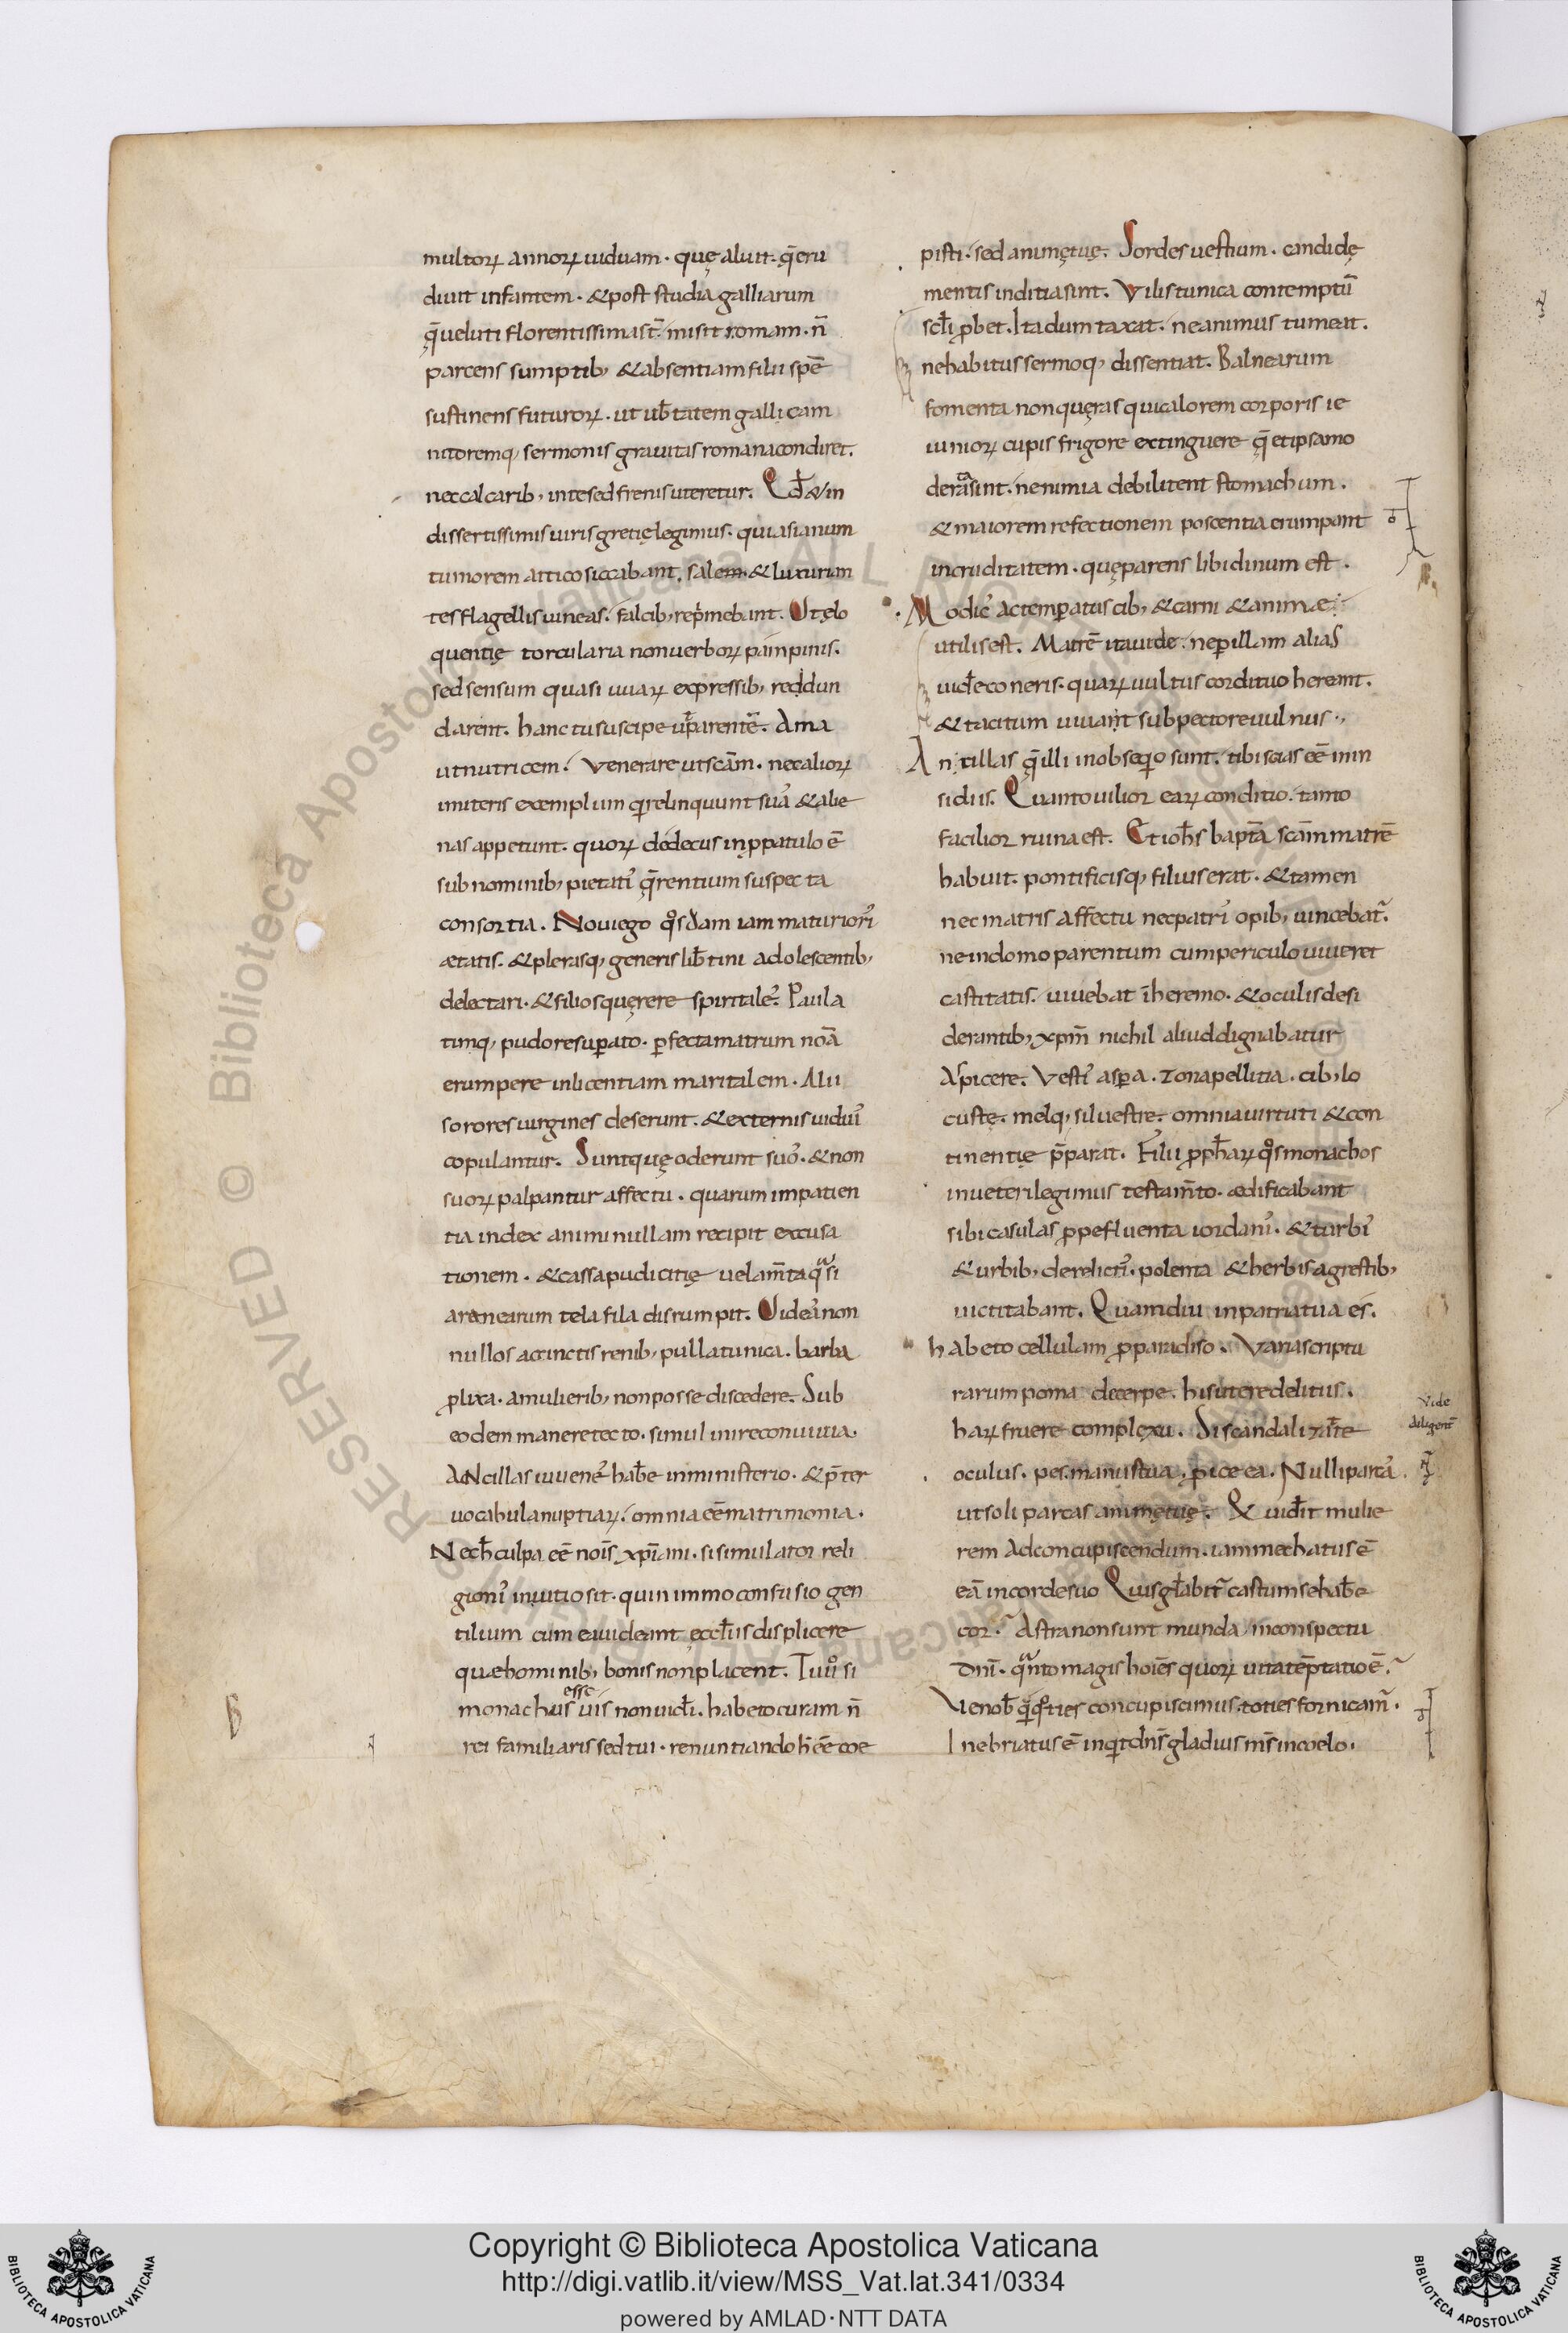 multoꝝ annoꝝ uiduam · quę aluit · q̄ eru
diuit infantem · & post studia galliarum
q̄ ueluti florentissima st̄ · misit romam · n̄
parcens sumptib; & absentiam filii spē
sustinens futuroꝝ · ut ub̄tatem gallicam
nitoremq; sermonis grauitas romana condiret.
nec calcarib; in te sed frenis uteretur. Qđ & in
dissertissimis uiris gretię legimus · qui asianum
tumorem attico siccabant, salem · & luxurian
tes flagellis uineas · falcib; rep̍mebant. Ut elo
quentię torcularia non uerboꝝ pampinis ·
sed sensum quasi uuaꝝ expressib; reddun
darent. hanc tu suscipe ut̄ parentē. Ama
ut nutricem. Venerare ut scām · nec alioꝝ
imiteris exemplum qͥ relinquunt suā & alie
nas appetunt. quoꝝ dedecus in p̱patulo ē
sub nominib; pietatiͣ q̄rentium suspecta
consortia. Noui ego qͦsdam iam maturioriͣ
ætatis. & plerasq; generis lib̄tini adolescentib;
delectari · & filios quęrere spiritaleͣ. Paula
timq; pudore sup̱ato · p̱fecta matrum noīa
erumpere in licentiam maritalem. Alii
sorores uirgines deserunt. & externis uiduiͣ
copulantur. Sunt quę oderunt suoͣ. & non
suoꝝ palpantur affectu. quarum impatien
tia index animi nullam recipit excusa
tionem · & cassa pudicitię uelam̄ta qͣsi
aranearum tela fila disrumpit. Uideaͣ non
nullos accinctis renib; pulla tunica · barba
p̱lixa · a mulierib; non posse discedere. Sub
eodem manere tecto · simul inire conuiuia ·
ANcillas iuueneͣ hab̄e in ministerio · & p̄ter
uocabula nuptiaꝝ · omnia eē matrimonia ·
Nec ħ culpa eē noīs xp̄iani · si simulator reli
gioniͣ in uitio sit · quin immo confusio gen
tilium cum ea uideant eccłiis displicere
quæ hominib; bonis non placent. Tu uͦ si
esse
monachus uis non uiđi. habeto curam n̄
rei familiaris sed tui · renuntiando ħ eē coe
pisti · sed animę tuę. Sordes uestium · candidę
mentis inditia sint. Vilis tunica contemptū
scłi p̱bet. Ita dumtaxat · ne animus tumeat.
ne habitus sermoq; dissentiat. Balnearum
fomenta non quęras qui calorem corporis ie
iunioꝝ cupis frigore extinguere q̄ et ipsa mo
derata sint. ne nimia debilitent stomachum.
& maiorem refectionem poscentia erumpant
in cruditatem · quę parens libidinum est.
Modicͣ ac temp̱atus cib; & carni & animæ
utilis est. Matrē ita uide · ne p̱ illam alias
uiđe coneris · quaꝝ uultus cordi tuo hereant.
& tacitum uiuant sub pectore uulnus ·,
Ancillas q̄ illi in obseqͥo sunt · tibi scias eē in in
sidiis. Quanto uilior eaꝝ conditio · tanto
facilior ruina est. Et ioħs baptā scām matrē
habuit · pontificisq; filius erat · & tamen
nec matris affectu nec patriͣ opib; uincebat̄.
ne in domo parentum cum periculo uiueret
castitatis. uiuebat ī heremo · & oculis desi
derantib; xp̄m nichil aliud dignabatur
Aspicere. Vestiͣ asp̱a · zona pellitia · cib; lo
custę. melq; siluestre. omnia uirtuti & con
tinentię p̄parat. Filii p̱pħaꝝ qͦs monachos
in ueteri legimus testam̄to · ædificabant
sibi casulas p̱pe fluenta iordaniͣ · & turbiͣ
& urbib; derelictiͣ · polenta & herbis agrestib;
uictitabant. Quamdiu in patria tua es.
habeto cellulam p̱ paradiso · Varia scriptu
rarum poma decerpe. his utere delitiis.
haꝝ fruere complexu. Si scandalizat te
Vide
diligent̄
oculus · pes · manus tua · p̱ice ea. Nulli parcaͣ
ut soli parcas animę tuę. Qͥ uiđit mulie
rem ad concupiscendum · iam mechatus ē
eā in corde suo Quis głabit̄ castum se hab̄e
cor · Astra non sunt munda in conspectu
dn̄i · qͣnto magis hoīes quoꝝ uita tēptatio ē.
Ve nob̄ qͥ qͦties concupiscimus · toties fornicam̄.
Inebriatus ē inqͥt dn̄s gladius m̄s in coelo ·
Copyright © Biblioteca Apostolica Vaticana
http://digi.vatlib.it/view/MSS_Vat.lat.341/0334
powered by AMLAD·NTT DATA
BIBLIOTECA APOSTOLICA VATICANA
BIBLIOTECA APOSTOLICA VATICANA